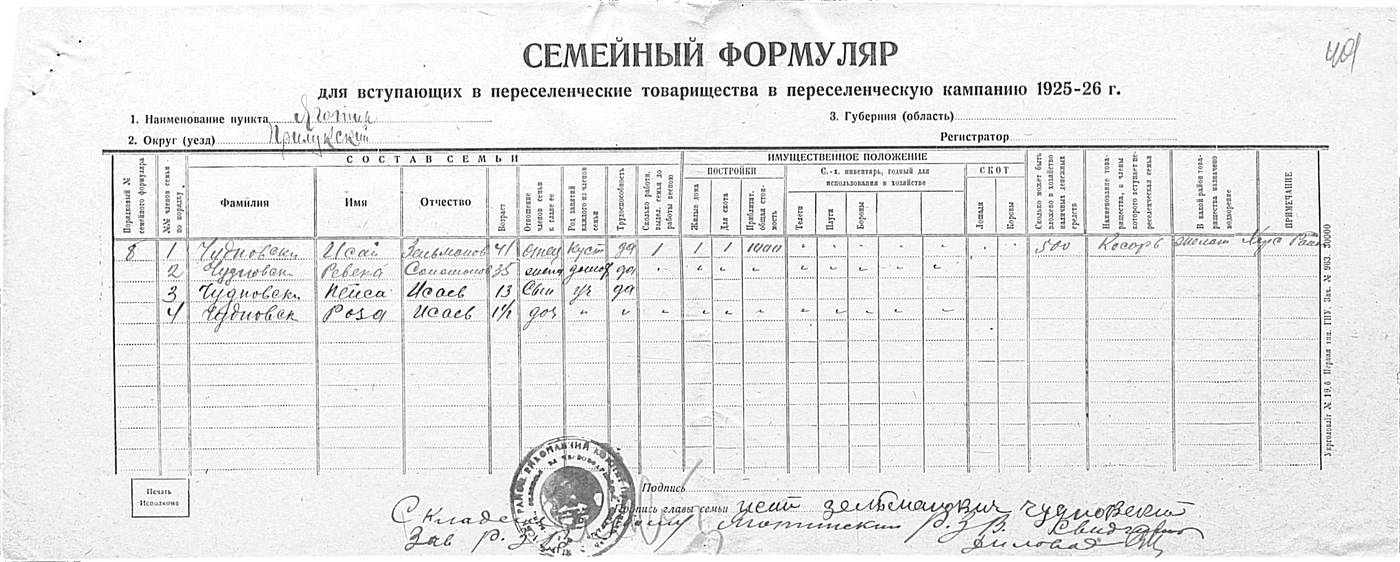 401
СЕМЕЙНЫЙ ФОРМУЛЯР
для вступающих в переселенческие товарищества в переселенческую кампанию 1925-26 г.
1. Наименование пункта Яготин
3. Губерния (область)
2. Округ (уезд) Прилукский
Регистратор
Порядковый № семейного формуляра
№№ членов семьи по порядку
СОСТАВ СЕМЬИ
Фамилия
Имя
Отчество
Возраст
Отношение членов семьи к главе ее
Род занятий каждого из членов семьи
Трудоспособность
Сколько работн. выдел. семья до работы весною
ИМУЩЕСТВЕННОЕ ПОЛОЖЕНИЕ
ПОСТРОЙКИ
Жилые дома
Для скота
Приблизит. общая стоимость
С.-х. инвентарь, годный для использования в хозяйстве
Телеги
Плуги
Бороны
СКОТ
Лошади
Коровы
Сколько может быть вложено в хозяйство наличных денежных средств
Наименование товарищества, в члены которого вступает переселенческая семья
В какой район товарищества назначено водворение
ПРИМЕЧАНИЕ
8 1 Чудновски Исай Зельманов 41 отец куст да 1 1 1 1000 " " " " " " " 500
2 Чудновск Ревека Соломонов 35 жена домох да " " " " " " " " "
3 Чудновски Пейса Исаев 13 Сын уч да
4 Чудновск Роза Исаев 1½ доч " " " " " " " " " " "
Печать
Исполкома
Подпись
Подпись главы семьи Исай Зельманович Чудновский
Яготинским Р.З.В.
Зав Р.З.В.